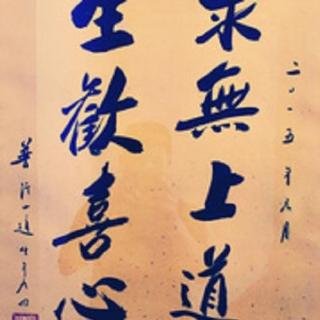 二〇一五年九月
求無上道
生歡喜心